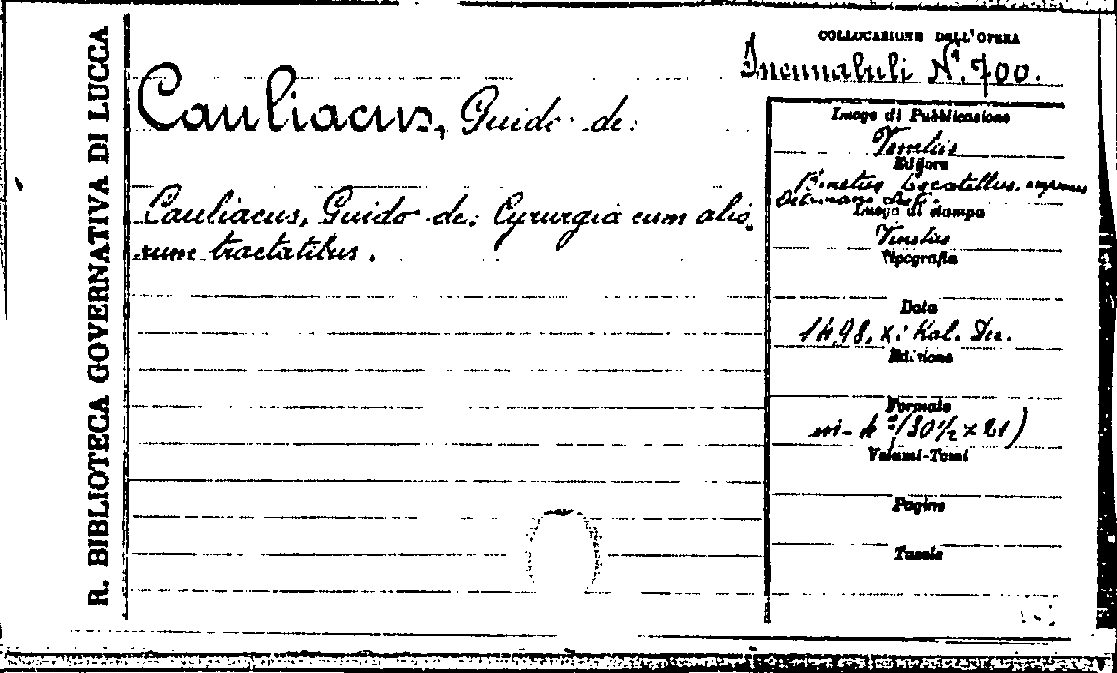 R. BIBLIOTECA GOVERNATIVA DI LUCCA
COLLOCAZIONE DELL'OPERA
Incunabuli N. 700.
Cauliacus, Guido de:
Cauliacus, Guido de: Cyrurgia cum alio,
rum tractatibus.
Luogo di Pubblicazione
Venetiis
Editore
Locatellus,
Luogo di stampa
Venetiis
Tipografia
Data
1498, X: Kal. De.
Edizione
Formato
in-4º (30½ x 21)
Volumi-Tomi
Pagine
Tavole